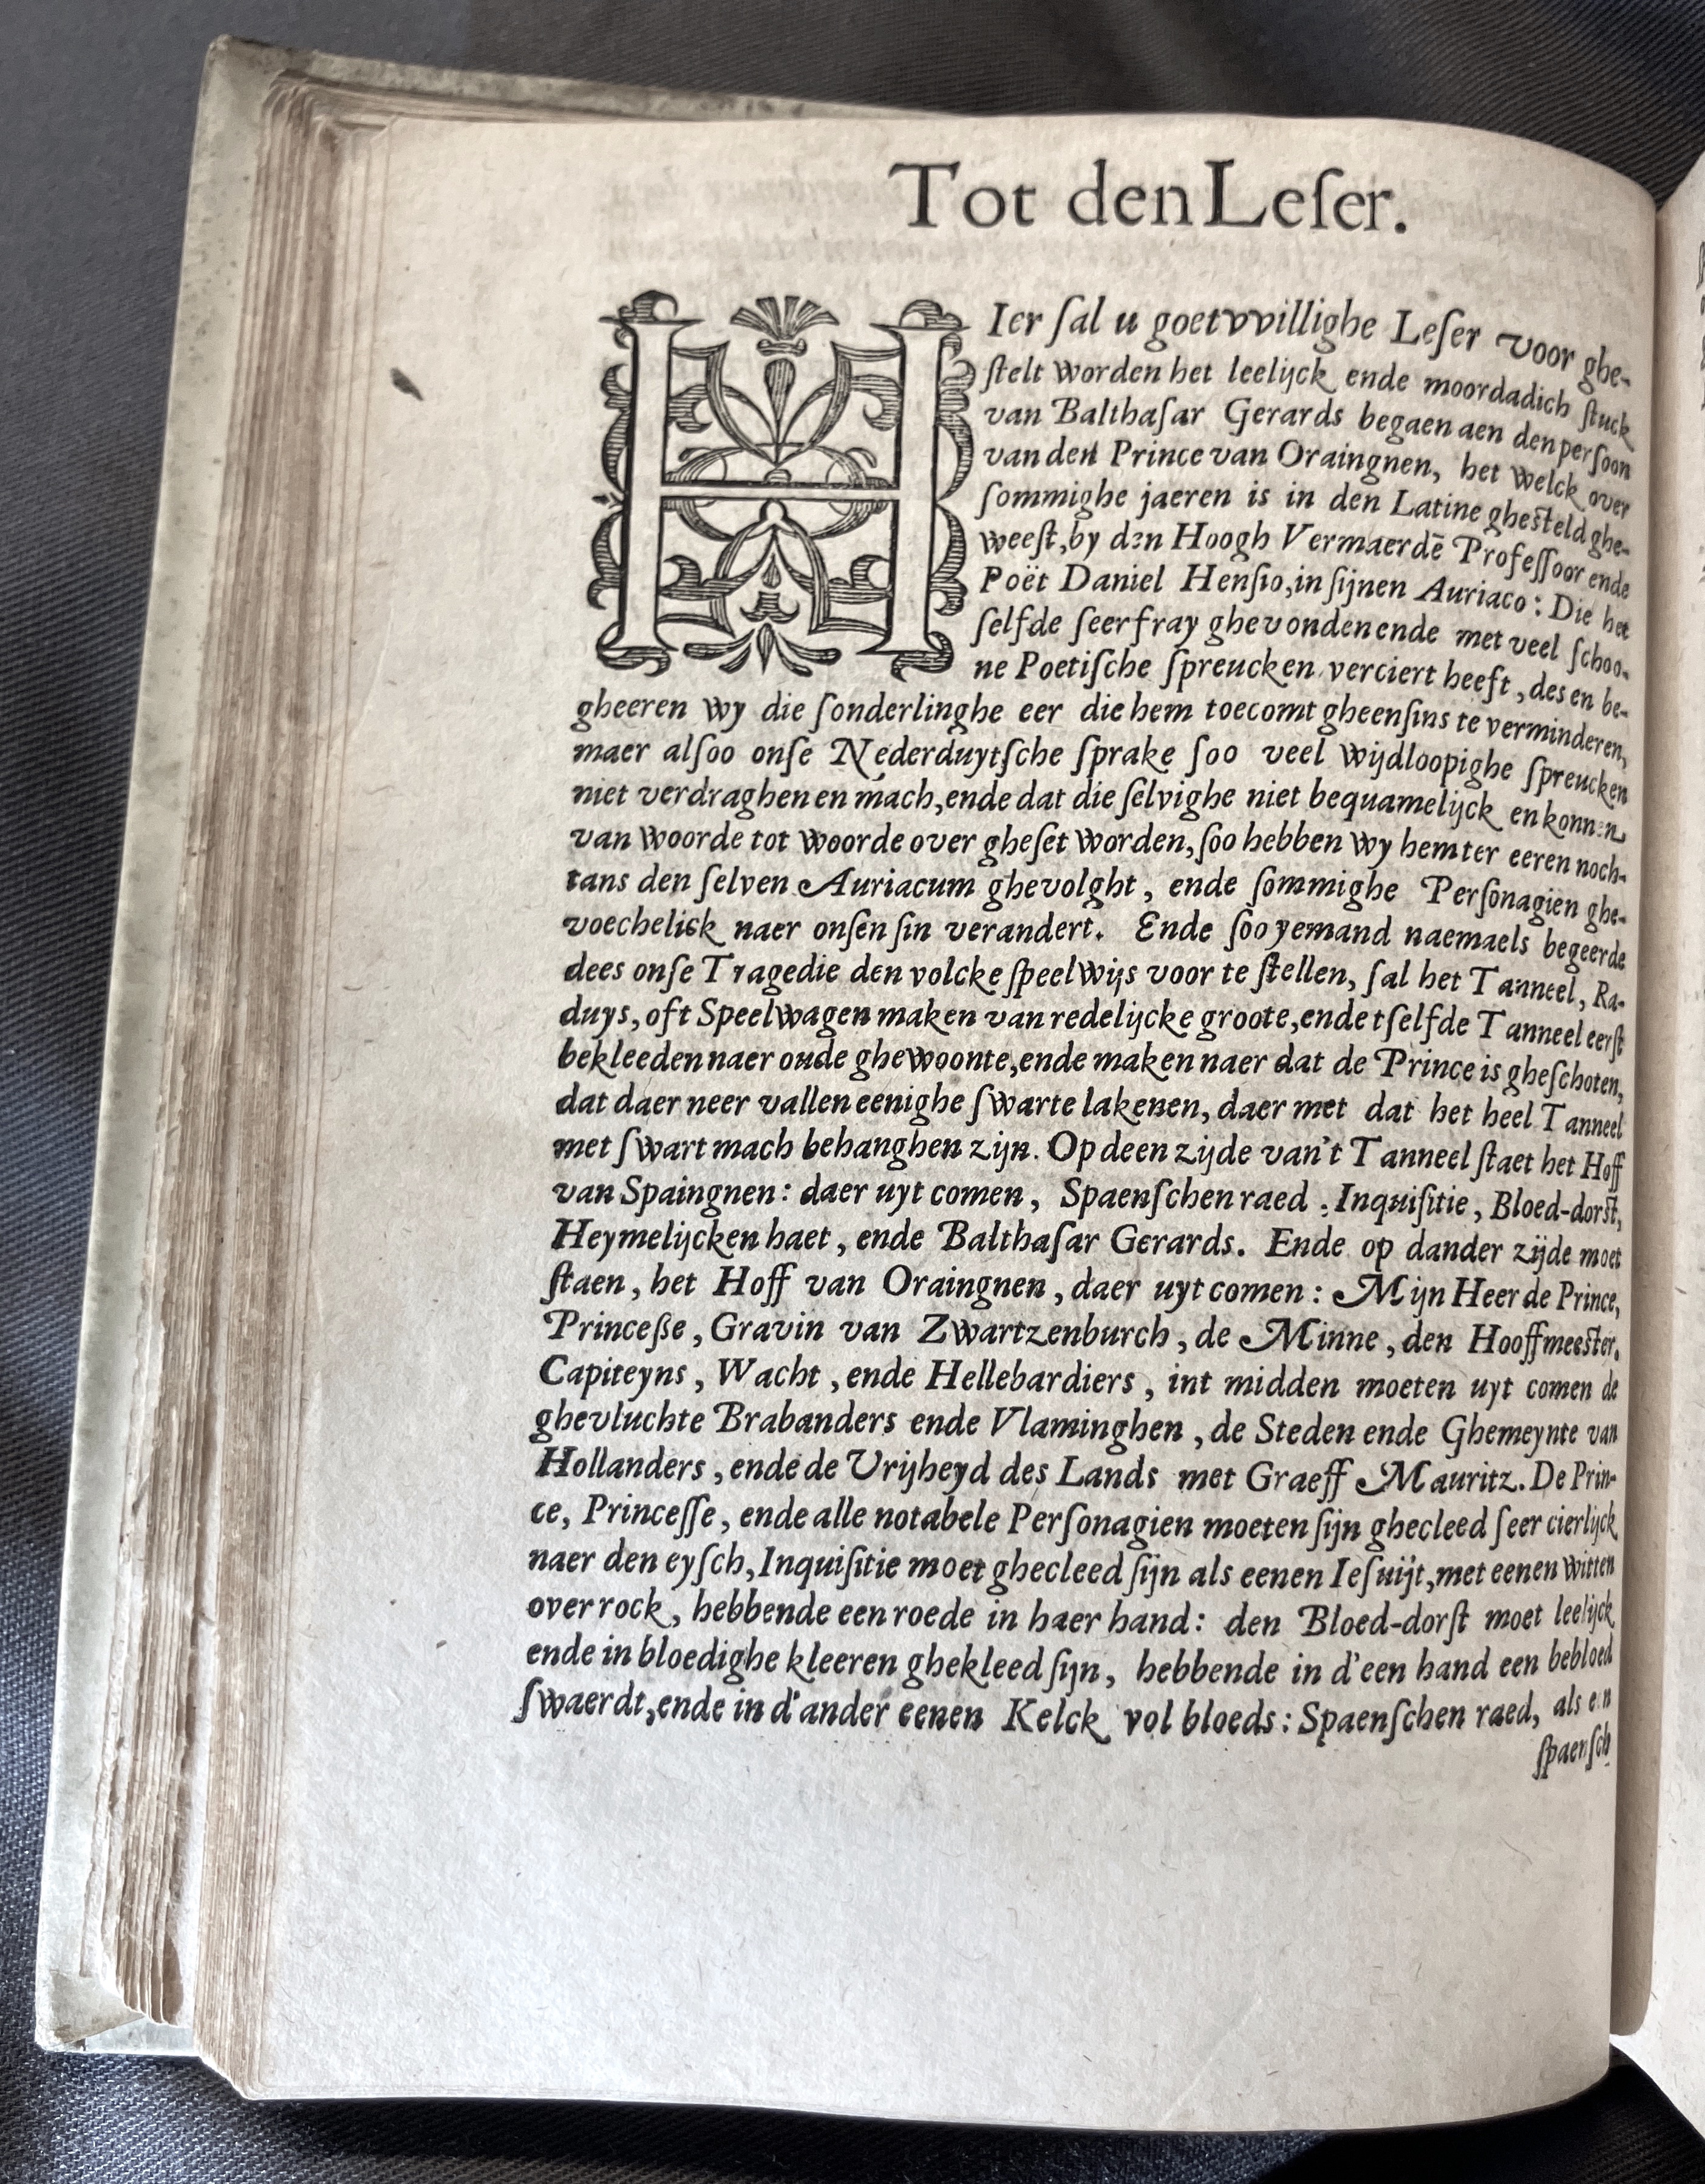 Tot den Leſer.
HIer ſal u goetvvillighe Leſer voor ghe-
ſtelt worden het leelijck ende moordadich ſtuck
van Balthaſar Gerards begaen aen den perſoon
van den Prince van Oraingnen, het welck over
ſommighe jaeren is in den Latine gheſteld ghe-
weeſt, by den Hoogh Vermaerdē Profeſſoor ende
Poët Daniel Henſio, in ſijnen Auriaco: Die het
ſelfde ſeer fray ghevonden ende met veel ſchoo-
ne Poetiſche ſpreucken verciert heeft, des en be-
gheeren wy die ſonderlinghe eer die hem toecomt gheenſins te verminderen,
maer alſoo onſe Nederduytſche ſprake ſoo veel wijdloopighe ſpreucken
niet verdraghen en mach, ende dat die ſelvighe niet bequamelijck en konnen
van woorde tot woorde over gheſet worden, ſoo hebben wy hem ter eeren noch-
tans den ſelven Auriacum ghevolght, ende ſommighe Perſonagien ghe-
voechelick naer onſen ſin verandert. Ende ſoo yemand naemaels begeerde
dees onſe Tragedie den volcke ſpeelwijs voor te ſtellen, ſal het Tanneel, Ra-
duys, oft Speelwagen maken van redelijcke groote, ende tſelfde Tanneel eerſt
bekleeden naer oude ghewoonte, ende maken naer dat de Prince is gheſchoten,
dat daer neer vallen eenighe ſwarte lakenen, daer met dat het heel Tanneel
met ſwart mach behanghen zijn. Op deen zijde van't Tanneel ſtaet het Hoff
van Spaingnen: daer uyt comen, Spaenſchen raed, Inquiſitie, Bloed-dorſt,
Heymelijcken haet, ende Balthaſar Gerards. Ende op dander zijde moet
ſtaen, het Hoff van Oraingnen, daer uyt comen: Mijn Heer de Prince,
Princeße, Gravin van Zwartzenburch, de Minne, den Hooffmeeſter,
Capiteyns, Wacht, ende Hellebardiers, int midden moeten uyt comen de
ghevluchte Brabanders ende Vlaminghen, de Steden ende Ghemeynte van
Hollanders, ende de Vrijheyd des Lands met Graeff Mauritz. De Prin-
ce, Princeſſe, ende alle notabele Perſonagien moeten ſijn ghecleed ſeer cierlijck
naer den eyſch, Inquiſitie moet ghecleed ſijn als eenen Ieſuijt, met eenen witten
overrock, hebbende een roede in haer hand: den Bloed-dorſt moet leelijck
ende in bloedighe kleeren ghekleed ſijn, hebbende in d'een hand een bebloed
ſwaerdt, ende in d'ander eenen Kelck vol bloeds: Spaenſchen raed, als een
ſpaenſch